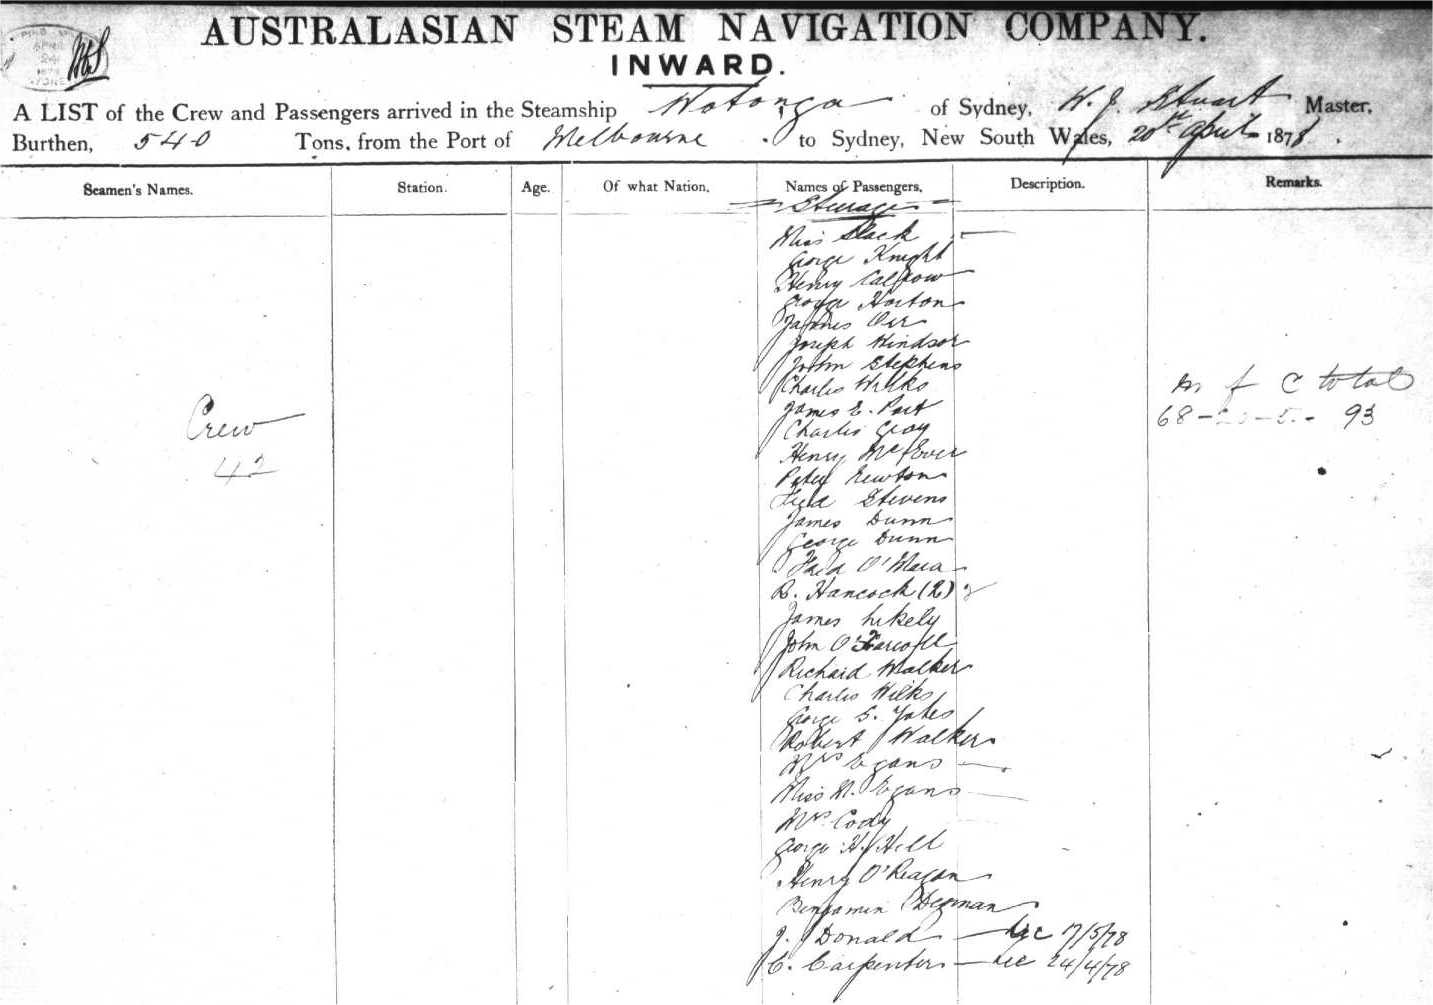 AUSTRALASIAN STEAM NAVIGATION COMPANY.
INWARD.
A LIST of the Crew and Passengers arrived in the Steamship Wotonga of Sydney, W. J. Stuart Master,
Burthen, 540 Tons, from the Port of Melbourne to Sydney, New South Wales, 20th April 1878.
Seamen's Names. Station. Age. Of what Nation. Names of Passengers. Description. Remarks.
Steerage
Miss Slack
George Knight
Henry
George Horton
James Orr
Joseph Windsor
John Stephens
Charles Wilks
m f C total
James E. Port
68 - 20 - 5 - 93
Crew
Charles Gray
42
Henry McEver
Peter Newton
Fred Stevens
James Dunn
George Dunn
Fred O'Mara
R. Hancock (2) 2
James Likely
John
Richard Walker
Charles Wilks
George S. Yates
Robert Walker
Mrs Egans
Miss M. Egans
Mrs Cody
George H. Hill
Henry O'Reagan
Benjamin
J. Donald 17/5/78
C. Carpenter 24/4/78